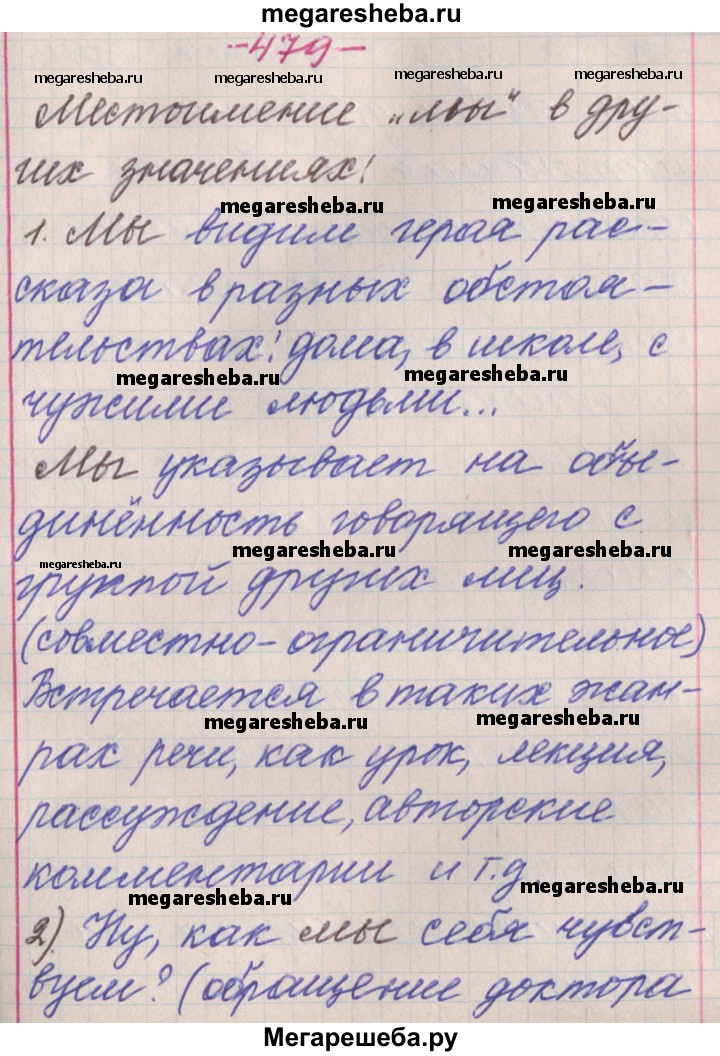 megaresheba.ru
-479-
megaresheba.ru megaresheba.ru megaresheba.ru megaresheba.ru
Местоимение „мы" в дру-
гих значениях!
megaresheba.ru megaresheba.ru
1. Мы видим героя рас-
сказа в разных обстоя-
тельствах! дома, в школе, с
megaresheba.ru megaresheba.ru
чужими людьми...
Мы указывает на объе-
динённость говорящего с
megaresheba.ru megaresheba.ru megaresheba.ru
группой других лиц.
(совместно-ограничительное)
Встречается в таких жан-
megaresheba.ru megaresheba.ru
рах речи, как урок, лекция,
рассуждение, авторские
комментарии и т.д.
megaresheba.ru megaresheba.ru
2). Ну, как мы себя чувст-
вуем? (обращение доктора
Мегарешеба.ру